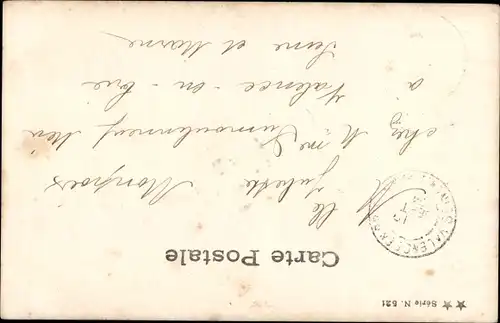 ★★ Série N. 521
Carte Postale
Mlle Juliette Monpois
chez Mme
à Valence-en-Brie
Seine et Marne
VALENCE EN BRIE